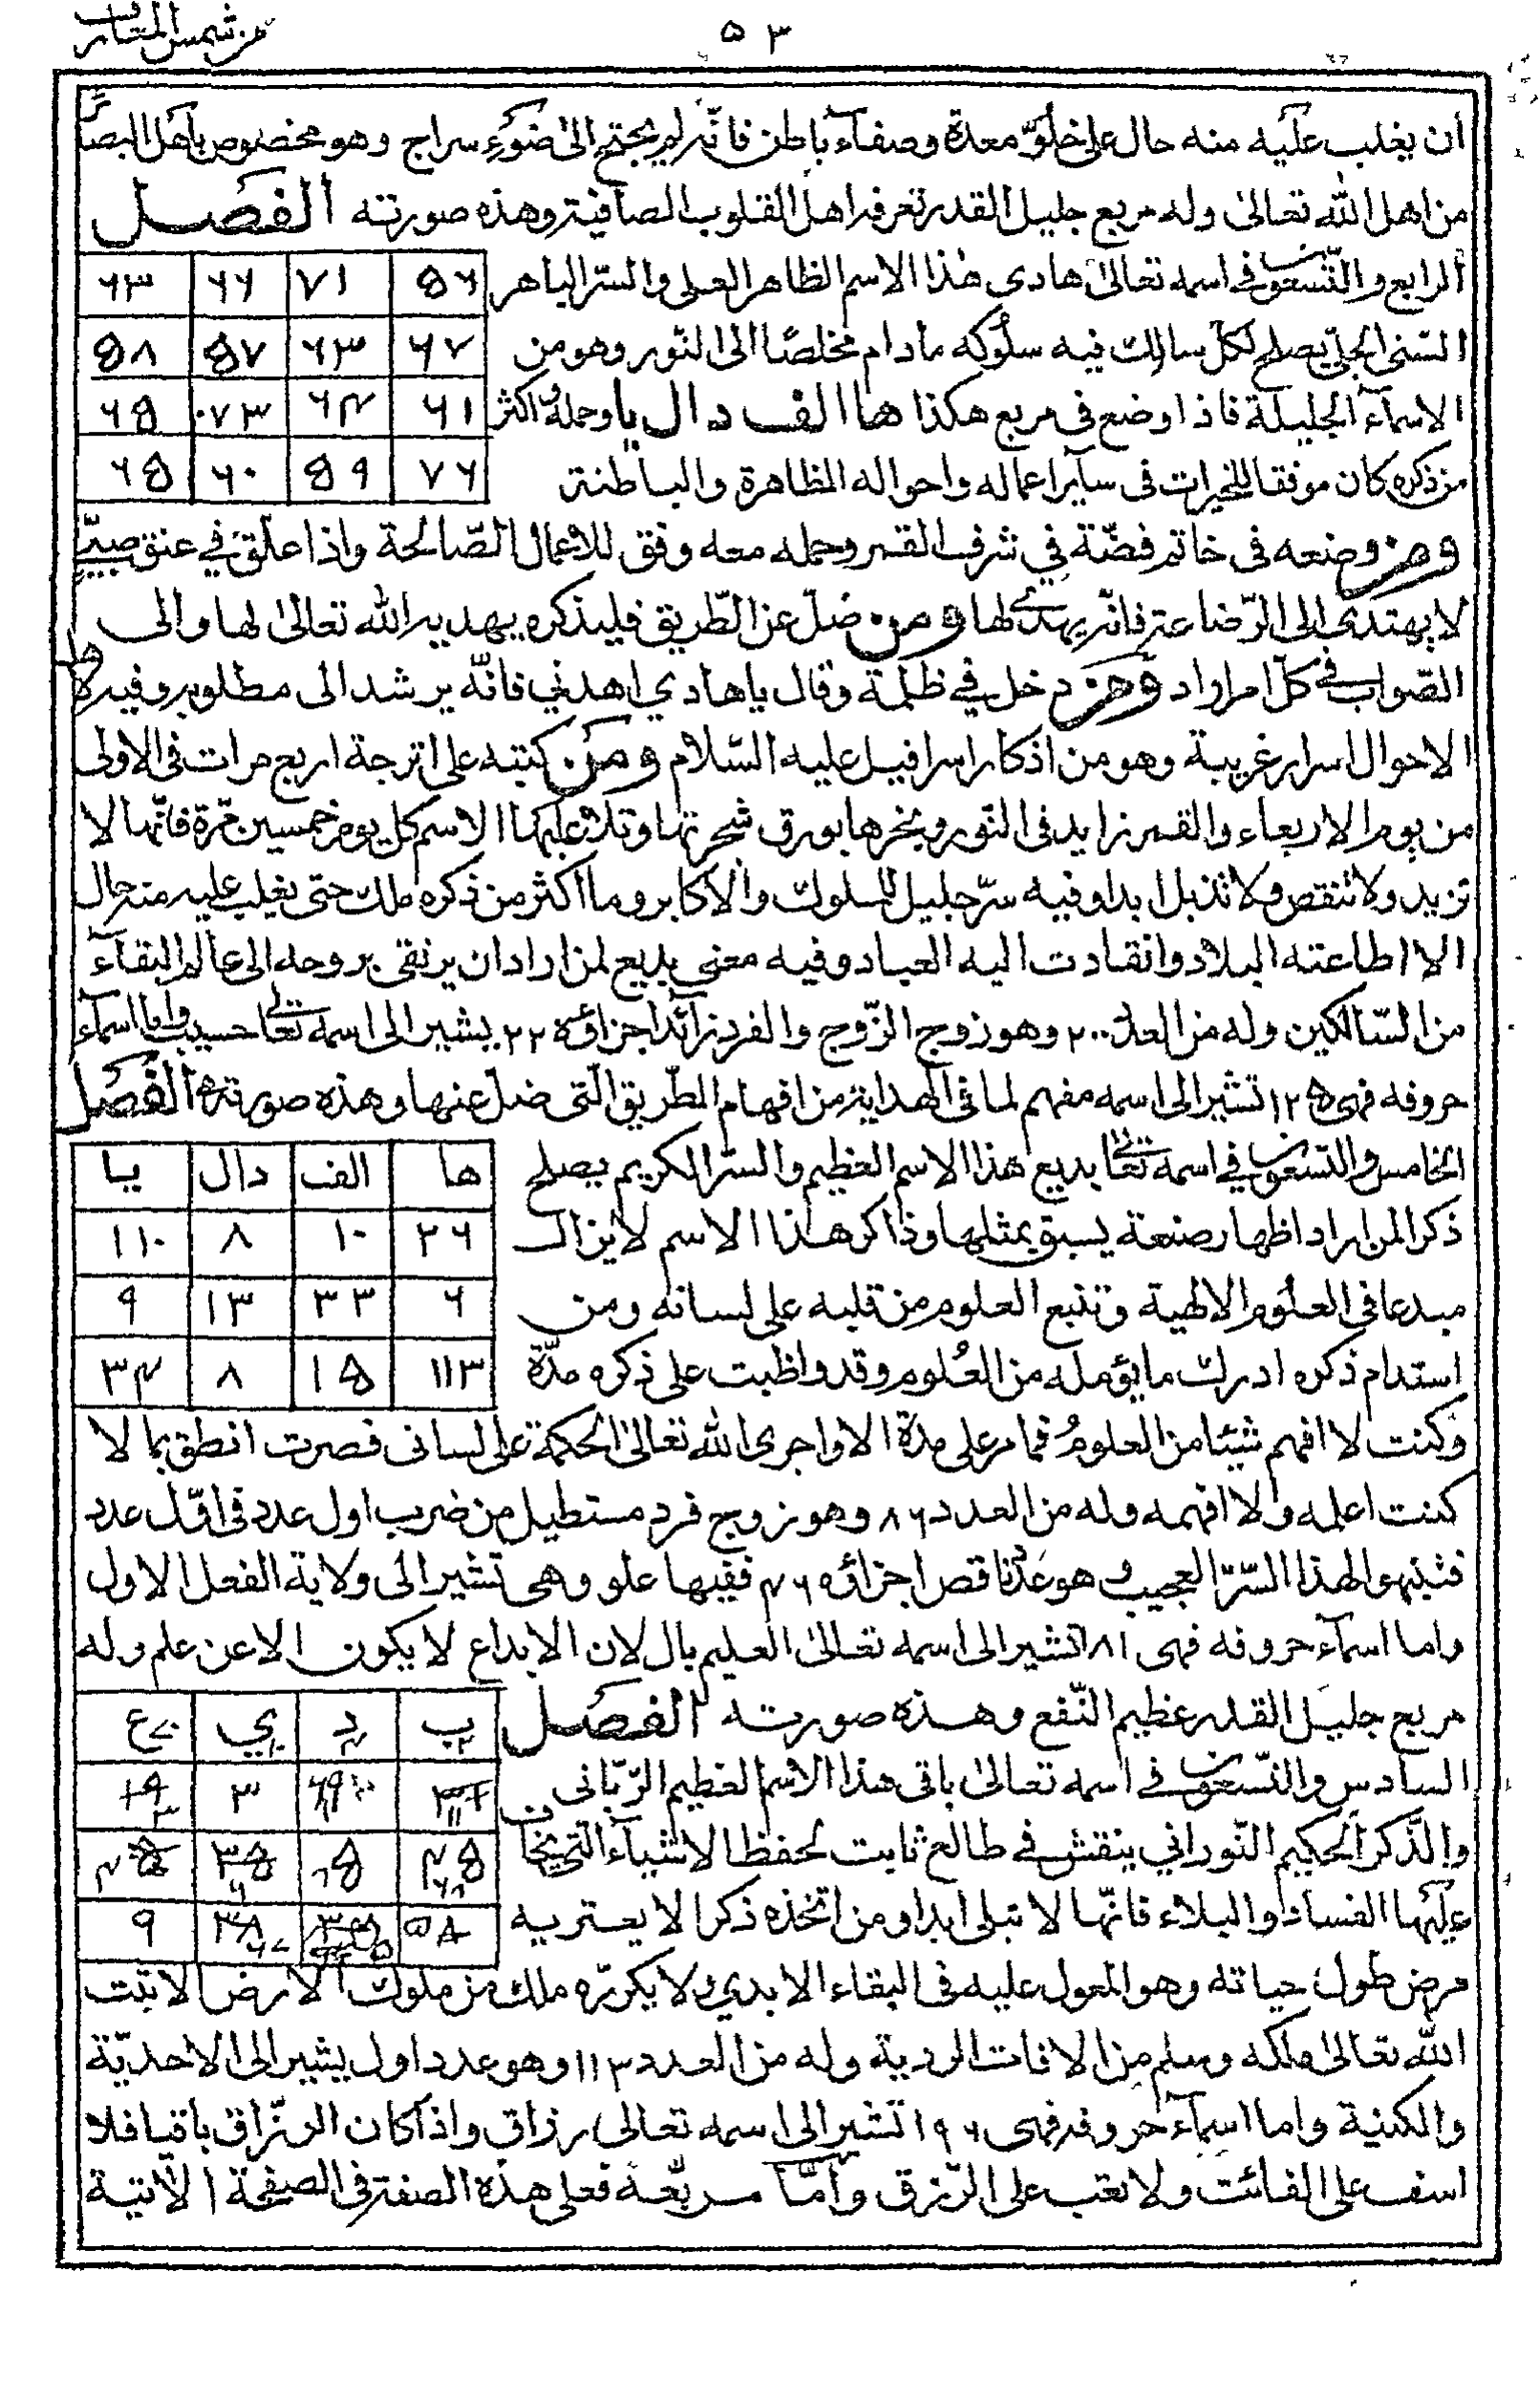 ٥٣
ان يغلب عليه منه حال على خلو معدة وصفآء باطن فانه لم يحتج الى ضوء سراج وهو مخصوص باهل البصائر
من اهل الله تعالى وله مربع جليل القدر تعرفه اهل القلوب الصافية وهذه صورته الفصل
الرابع والتسعون فى اسمه تعالى هادى هذا الاسم الظاهر العلى والسر الباهر
السنى الجلى يصلح لكل سالك فيه سلوكه مادام مخلصا الى النور وهو من
الاسمآء الجليلة فاذا وضع فى مربع هكذا ها الف دال يا وحمله واكثر
من ذكره كان موفقا للخيرات فى سآير اعماله واحواله الظاهرة والباطنة
٥٦ ٧١ ٦٦ ٦٣
٦٧ ٦٣ ٥٧ ٥٨
٦١ ٦٤ ٧٣ ٦٥
٧٦ ٥٩ ٦٠ ٦٥
ومن وضعه فى خاتم فضة في شرف القمر وحمله معه وفق للاعمال الصالحة واذا علق في عنق صبي
لا يهتدى الى الرضاعة فانه يهتدى لها ومن ضل عن الطريق فليذكره يهديه الله تعالى لها والى
الصواب فى كل امر اراد ومن دخل في ظلمة وقال يا هادي اهدني فانه يرشد الى مطلوبه وفيه لاهل
الاحوال اسرار غريبة وهو من اذكار اسرافيل عليه السلام ومن كتبه على اترجة اربع مرات فى الاولى
من يوم الاربعاء والقمر زايد فى النور وبخرها بورق شجرتها وتلا عليها الاسم كل يوم خمسين مرة فانها لا
تزيد ولا تنقص ولا تذبل ابدا وفيه سر جليل للملوك والاكابر وما اكثر من ذكره ملك حتى يغلب عليه منه حال
الا اطاعته البلاد وانقادت اليه العباد وفيه معنى بديع لمن اراد ان يرتقى بروحه الى عالم البقآء
من السالكين وله من العدد ٢٠٠ وهو زوج الزوج والفرد زآئد اجزاؤه ٢٢ يشير الى اسمه تعالى حسيب واما اسمآء
حروفه فهى ١٢٥ تشير الى اسمه مفهم لما فى الهداية من افهام الطريق التى ضل عنها وهذه صورته الفصل
الخامس والتسعون فى اسمه تعالى بديع هذا الاسم العظيم والسر الكريم يصلح
ذكرا لمن اراد اظهار صنعة يسبق بمثلها وذاكر هذا الاسم لا يزال
مبدعا فى العلوم الالهية وتنبع العلوم من قلبه على لسانه ومن
استدام ذكره ادرك ما يؤمله من العلوم وقد واظبت على ذكره مدة
ها الف دال يا
٢٦ ١٠ ٨ ١١٠
٦ ٣٣ ١٣ ٩
١١٣ ١٥ ٨ ٣٤
وكنت لا افهم شيئا من العلوم فما مر على مدة الا واجرى الله تعالى الحكمة على لسانى فصرت انطق بما لا
كنت اعلمه ولا افهمه وله من العدد ٨٦ وهو زوج فرد مستطيل من ضرب اول عدد فى اول عدد
فتنبهوا لهذا السر العجيب وهو عدد ناقص اجزاؤه ٤٦ ففيها علو وهى تشير الى ولاية الفعل الاول
واما اسمآء حروفه فهى ١٨١ تشير الى اسمه تعالى العليم بال لان الابداع لا يكون الا عن علم وله
مربع جليل القدر عظيم النفع وهذه صورته الفصل
السادس والتسعون فى اسمه تعالى باقى هذا الاسم العظيم الربانى
والذكر الحكيم النوراني ينقش فى طالع ثابت لحفظ الاشيآء التى يخاف
عليها الفساد والبلاء فانها لا تبلى ابدا ومن اتخذه ذكرا لا يعتريه
مرض طول حياته وهو المعول عليه فى البقاء الابدى ولا يكرره ملك من ملوك الارض الا ثبت
الله تعالى ملكه وسلم من الافات الردية وله من العدد ١١٣ وهو عدد اول يشير الى الاحدية
والكنية واما اسمآء حروفه فهى ١٩٦ تشير الى اسمه تعالى رزاق واذا كان الرزاق باقيا فلا
اسف على الفائت ولا تعب على الرزق وأما مربعه فعلى هذه الصفة فى الصفحة الآتية